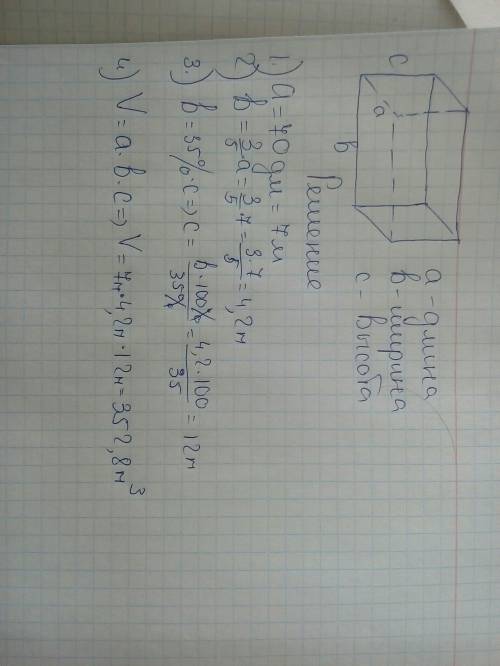 c
a
в
a - длина
в - ширина
c - высота
Решение
1.) a = 70 дм = 7 м
2) в = 3/5 · a = 3/5 · 7 = 3·7/5 = 4,2 м
3.) в = 35% · c => c = в·100%/35% = 4,2·100/35 = 12 м
4) V = a · в · c => V = 7м · 4,2м · 12м = 352,8 м³